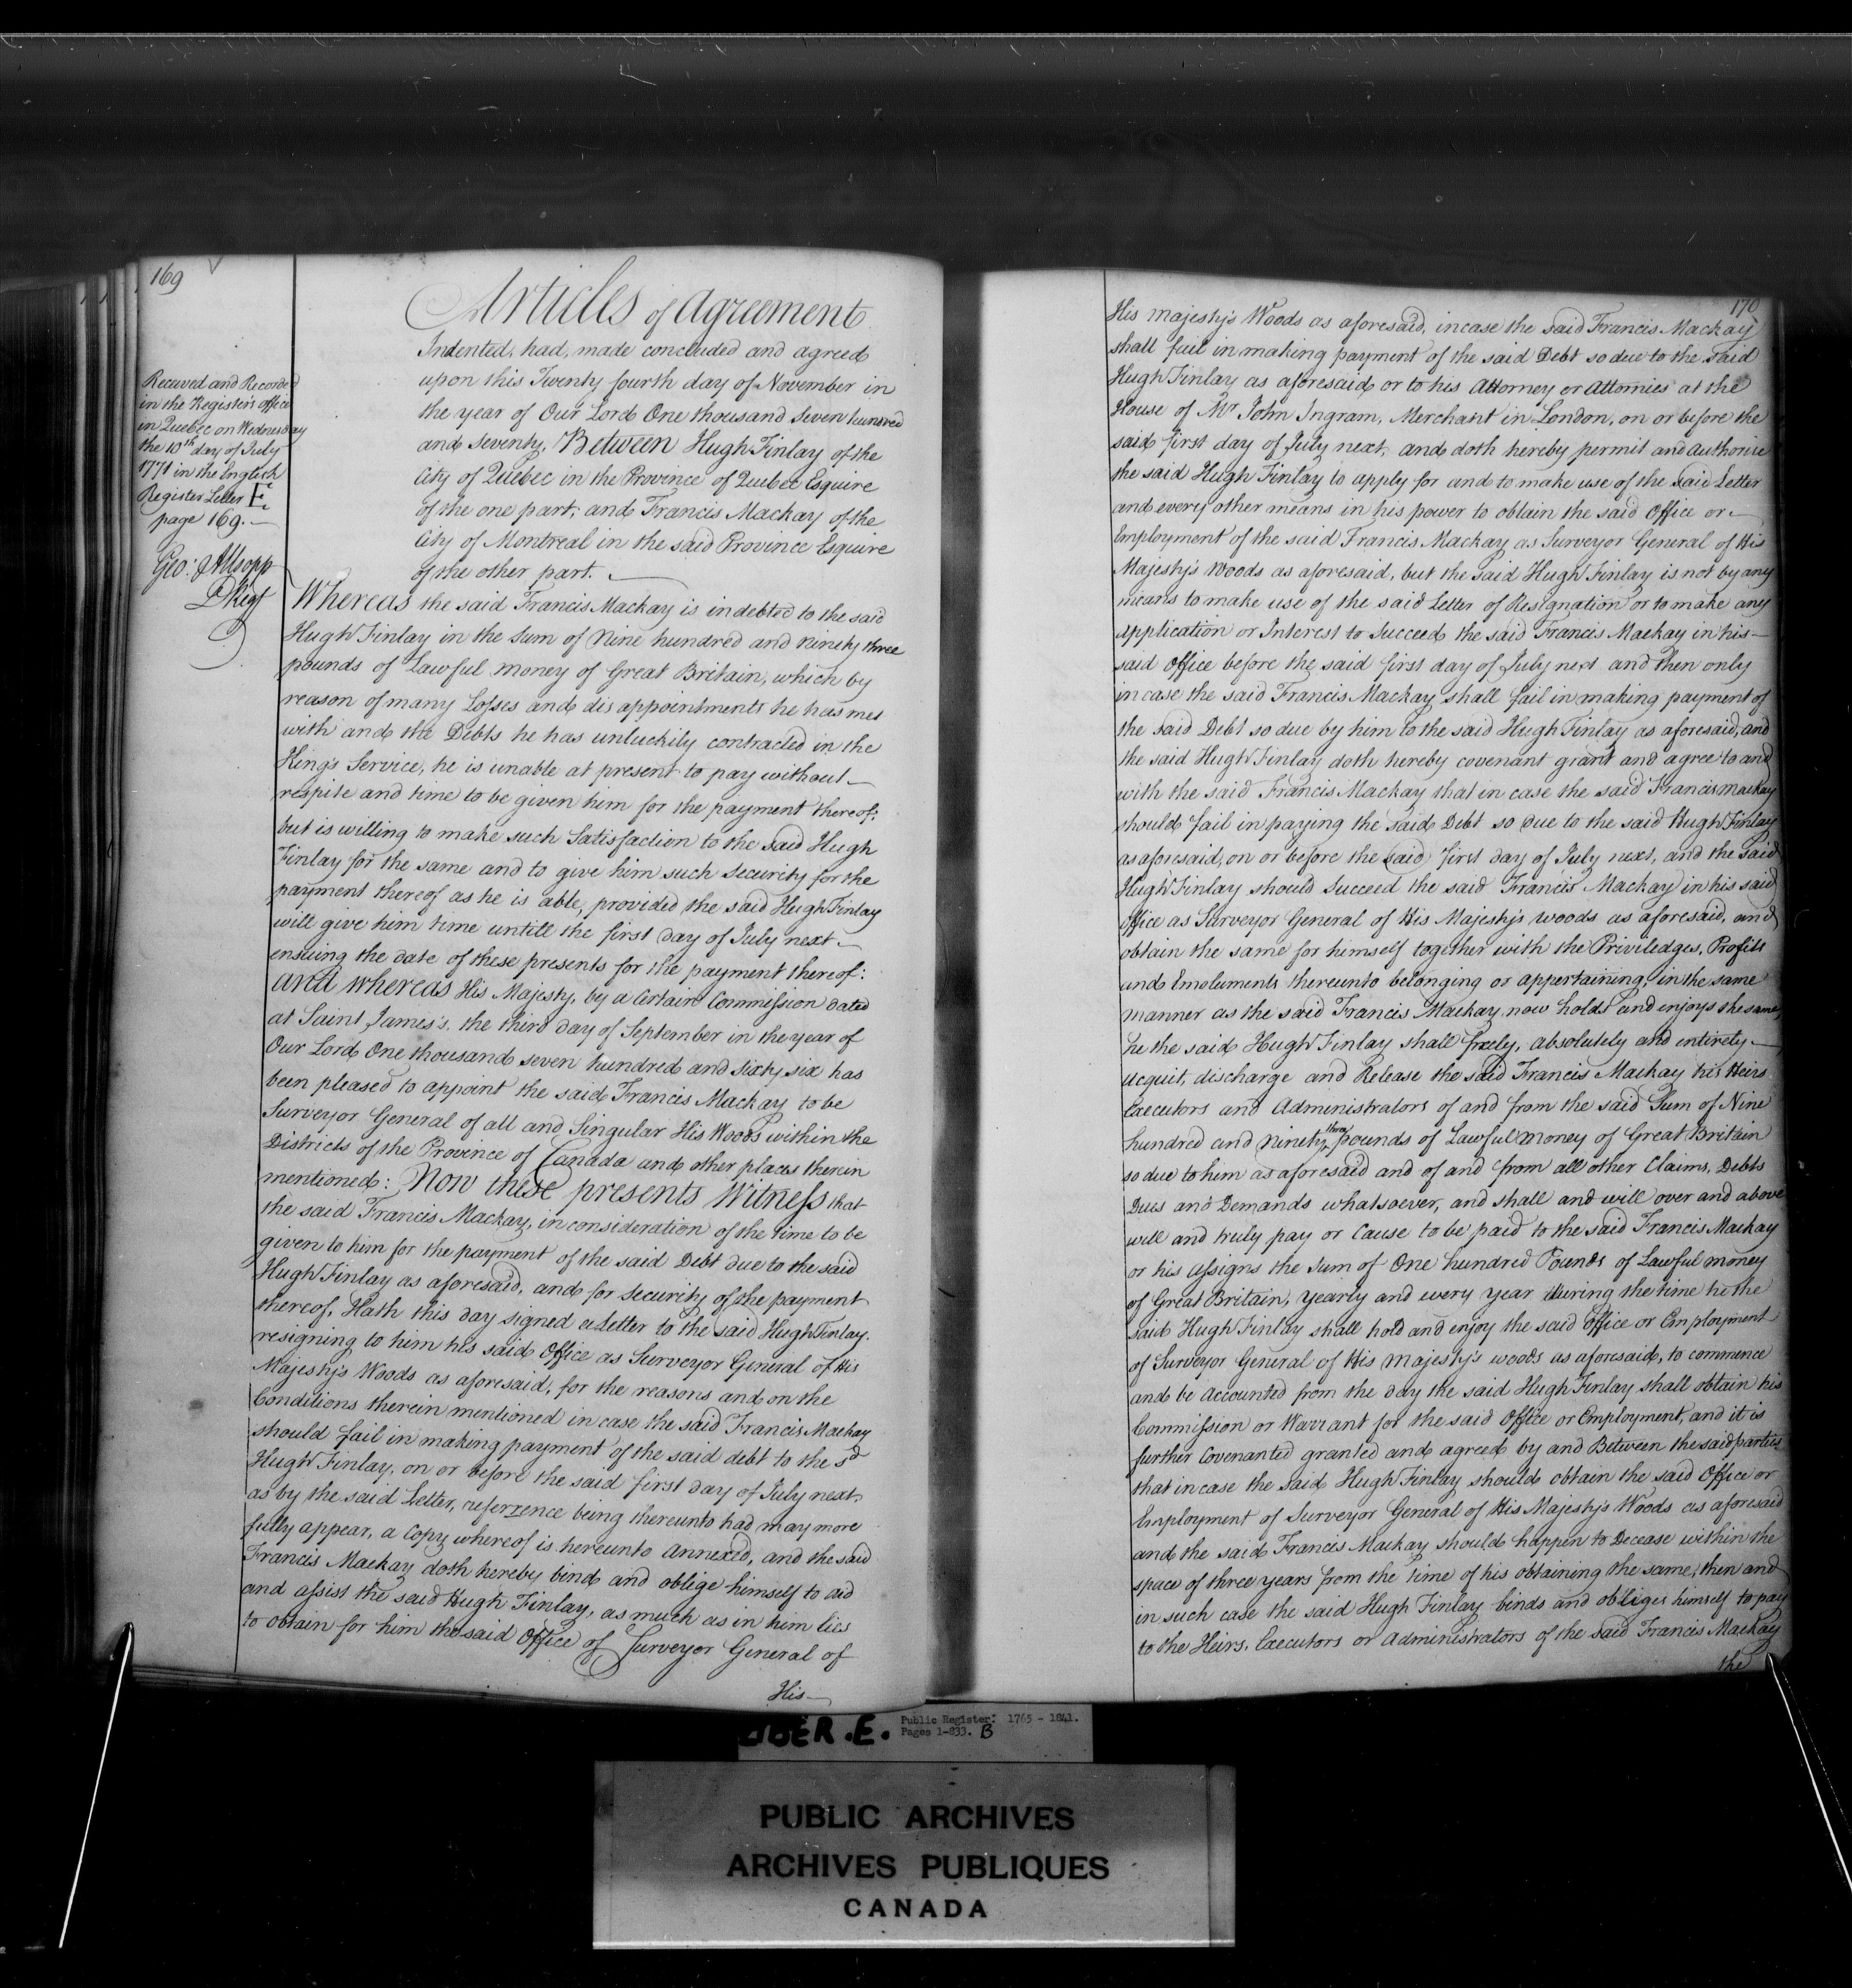 169
Received and Recorded
in the Register's office
in Quebec on Wednesday
the 10th day of July
1771 in the English
Register Letter E.
page 169.
Geo: Allsopp
D Regr
Articles of Agreement
Indented, had, made concluded and agreed
upon this Twenty fourth day of November in
the year of Our Lord One thousand Seven hundred
and Seventy, Between Hugh Finlay of the
City of Quebec in the Province of Quebec Esquire
of the one part; and Francis Mackay of the
City of Montreal in the said Province Esquire
of the other part.
Whereas the said Francis Mackay is indebted to the said
Hugh Finlay in the Sum of Nine hundred and ninety three
pounds of Lawful money of Great Britain, which by
reason of many Losses and disappointments he has met
with and the Debts he has unluckily contracted in the
King's Service, he is unable at present to pay without
respite and time to be given him for the payment thereof,
but is willing to make such Satisfaction to the said Hugh
Finlay for the same and to give him such Security for the
payment thereof as he is able, provided the said Hugh Finlay
will give him time untill the first day of July next
ensuing the date of these presents for the payment thereof:
and whereas His Majesty, by a Certain Commission dated
at Saint James's, the third day of September in the year of
Our Lord One thousand seven hundred and Sixty six has
been pleased to appoint the said Francis Mackay to be
Surveyor General of all and Singular His Woods within the
Districts of the Province of Canada and other places therein
mentioned: Now these presents Witness that
the said Francis Mackay, in consideration of the time to be
given to him for the payment of the said Debt due to the said
Hugh Finlay as aforesaid, and for Security of the payment
thereof, Hath this day signed a Letter to the said Hugh Finlay,
resigning to him his said Office as Surveyor General of His
Majesty's Woods as aforesaid, for the reasons and on the
Conditions therein mentioned in case the said Francis Mackay
should fail in making payment of the said debt to the sd
Hugh Finlay, on or before the said first day of July next,
as by the said Letter, referrence being thereunto had may more
fully appear, a Copy whereof is hereunto Annexed, and the said
Francis Mackay doth hereby bind and oblige himself to aid
and assist the said Hugh Finlay, as much as in him lies
to obtain for him the said Office of Surveyor General of
His
170
His Majesty's Woods as aforesaid, incase the said Francis Mackay
shall fail in making payment of the said Debt so due to the said
Hugh Finlay as aforesaid or to his Attorney or Attornies at the
House of Mr John Ingram, Merchant in London, on or before the
said first day of July next, and doth hereby permit and Authorize
the said Hugh Finlay to apply for and to make use of the said Letter
and every other means in his power to obtain the said Office or
Employment of the said Francis Mackay as Surveyor General of His
Majesty's Woods as aforesaid, but the said Hugh Finlay is not by any
means to make use of the said Letter of Resignation or to make any
Application or Interest to Succeed the said Francis Mackay in his
said Office before the said first day of July next and then only
in case the said Francis Mackay shall fail in making payment of
the said Debt so due by him to the said Hugh Finlay as aforesaid, and
the said Hugh Finlay doth hereby covenant grant and agree to and
with the said Francis Mackay that in case the said Francis Mackay
should fail in paying the said Debt so due to the said Hugh Finlay
as aforesaid, on or before the said first day of July next, and the said
Hugh Finlay should Succeed the said Francis Mackay in his said
Office as Surveyor General of His Majesty's woods as aforesaid, and
obtain the same for himself together with the Priviledges, Profits
and Emoluments thereunto belonging or appertaining, in the same
manner as the said Francis Mackay now holds and enjoys the same,
he the said Hugh Finlay shall freely, absolutely and entirely
acquit, discharge and Release the said Francis Mackay his Heirs
Executors and Administrators of and from the said Sum of Nine
hundred and Ninety three pounds of Lawful money of Great Britain
so due to him as aforesaid and of and from all other Claims, Debts
Dues and Demands whatsoever, and shall and will over and above
will and truly pay or Cause to be paid to the said Francis Mackay
or his Assigns the Sum of One hundred Pounds of Lawful money
of Great Britain, yearly and every year during the time he the
said Hugh Finlay shall hold and enjoy the said Office or Employment
of Surveyor General of His Majesty's woods as aforesaid, to commence
and be accounted from the day the said Hugh Finlay shall obtain his
Commission or Warrant for the said Office or Employment, and it is
further Covenanted granted and agreed by and Between the said parties
that in case the said Hugh Finlay should obtain the said Office or
Employment of Surveyor General of His Majesty's Woods as aforesaid
and the said Francis Mackay should happen to Decease within the
space of three years from the time of his obtaining the same, then and
in such case the said Hugh Finlay binds and obliges himself to pay
to the Heirs, Executors or Administrators of the said Francis Mackay
the
LIBER .E. Public Register: 1765 - 1841.
Pages 1-833. B
PUBLIC ARCHIVES
ARCHIVES PUBLIQUES
CANADA